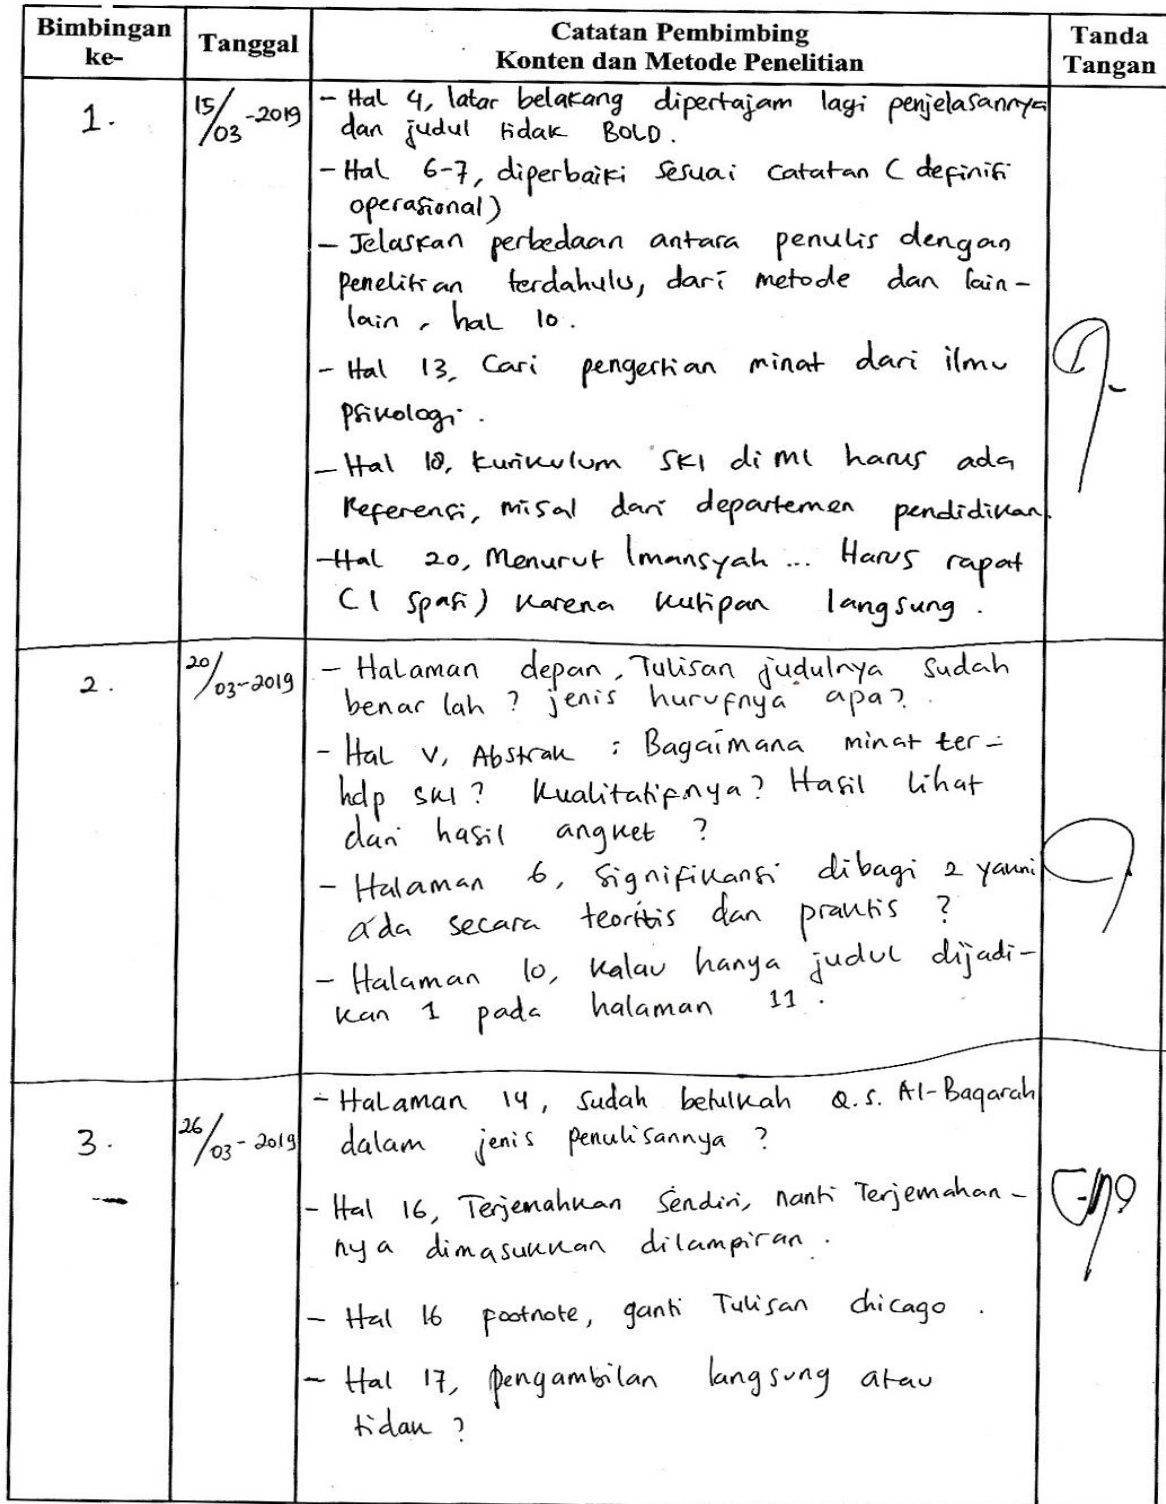 Bimbingan ke-
Tanggal
Catatan Pembimbing
Konten dan Metode Penelitian
Tanda Tangan
1.
15/03-2019
- Hal 4, latar belakang dipertajam lagi penjelasannya
dan judul tidak BOLD.
- Hal 6-7, diperbaiki sesuai catatan (definisi
operasional)
- Jelaskan perbedaan antara penulis dengan
penelitian terdahulu, dari metode dan lain-
lain, hal 10.
- Hal 13, Cari pengertian minat dari ilmu
psikologi.
- Hal 18, kurikulum SKI di MI harus ada
Referensi, misal dari departemen pendidikan.
- Hal 20, Menurut Imansyah ... Harus rapat
(1 spasi) karena kutipan langsung.
2.
20/03-2019
- Halaman depan, Tulisan judulnya sudah
benar lah? jenis hurufnya apa?
- Hal V, Abstrak : Bagaimana minat ter-
hdp SKI? Kualitatifnya? Hasil lihat
dari hasil angket ?
- Halaman 6, Signifikansi dibagi 2 yakni
ada secara teoritis dan praktis ?
- Halaman 10, kalau hanya judul dijadi-
kan 1 pada halaman 11.
3.
26/03-2019
- Halaman 14, sudah betulkah Q.S. Al-Baqarah
dalam jenis penulisannya ?
- Hal 16, Terjemahkan Sendiri, nanti Terjemahan-
nya dimasukkan dilampiran.
- Hal 16 footnote, ganti Tulisan chicago.
- Hal 17, pengambilan langsung atau
tidak ?